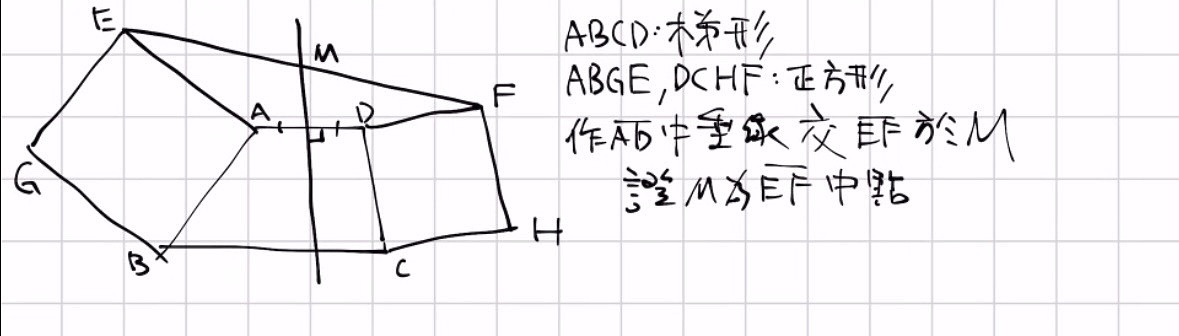 E
M
A
D
F
G
B
C
H
ABCD:梯形
ABGE,DCHF:正方形
作AD中垂線交EF於M
證M為EF中點